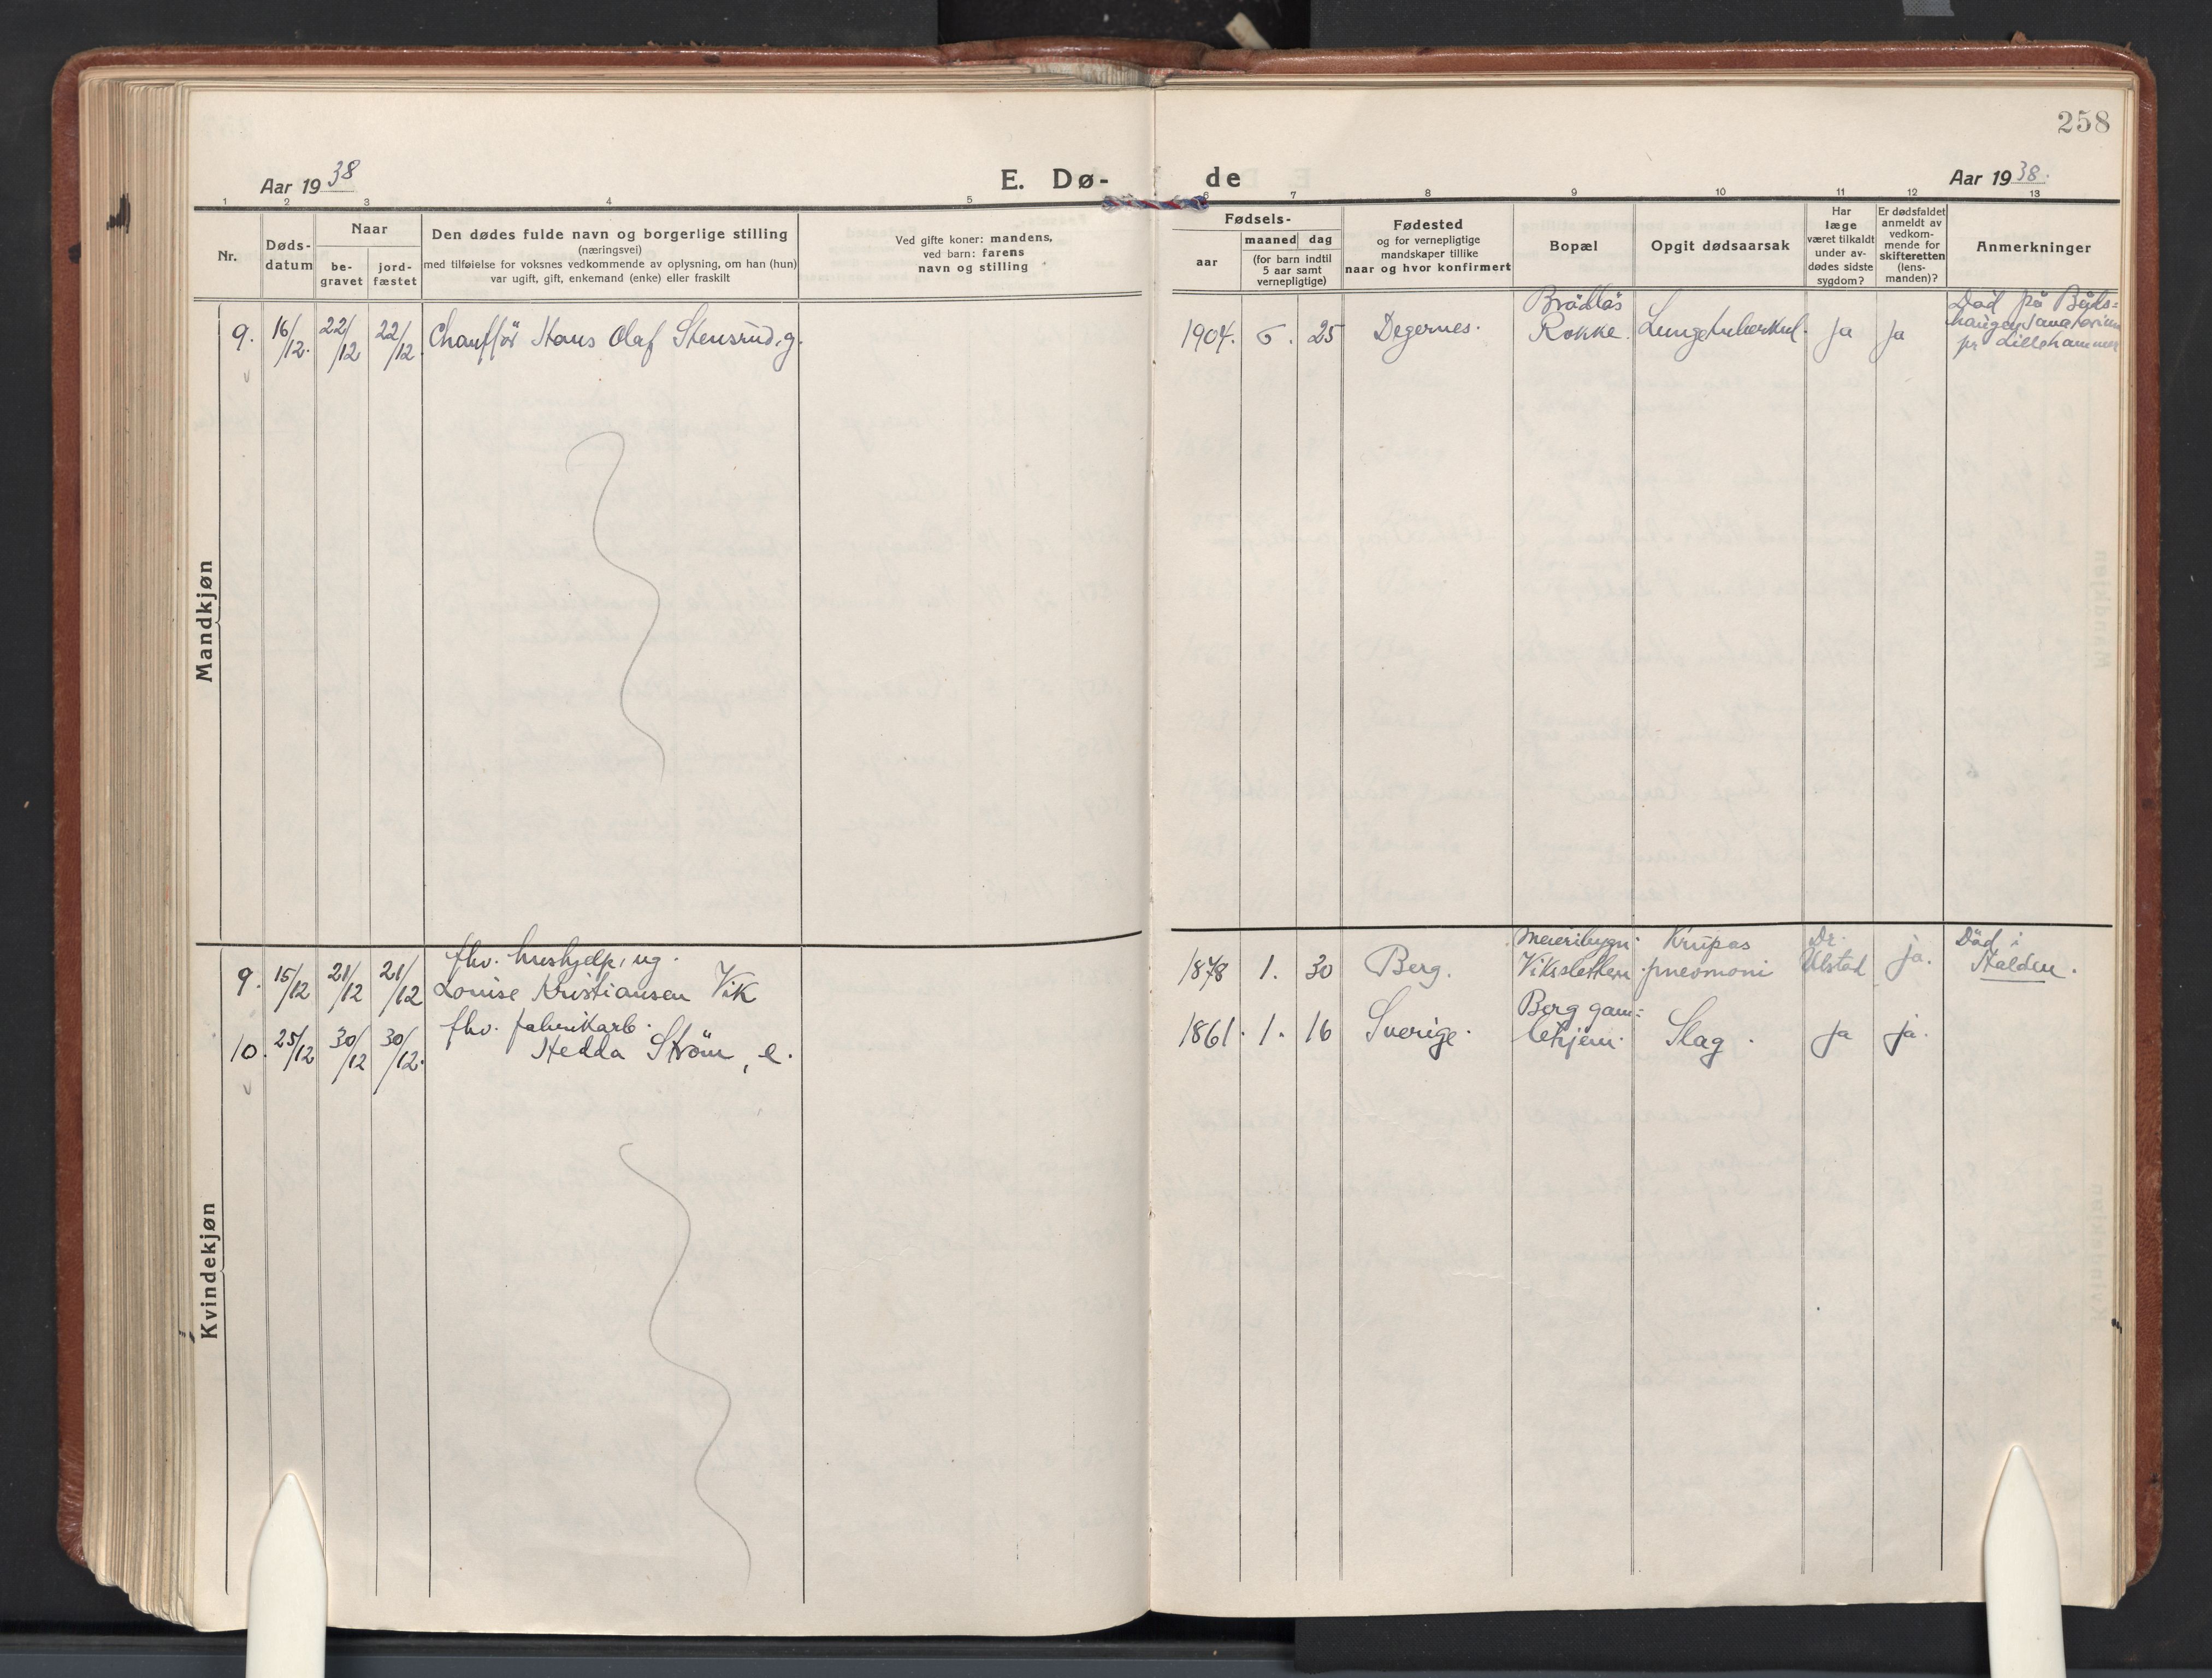 258
Aar 1938
E. Dø-
de
Aar 1938.
1 2 3 4 5 6 7 8 9 10 11 12 13
Nr.
Døds-
datum
Naar
be-
gravet
jord-
fæstet
Den dødes fulde navn og borgerlige stilling
(næringsvei)
med tilføielse for voksnes vedkommende av oplysning, om han (hun)
var ugift, gift, enkemand (enke) eller fraskilt
Ved gifte koner: mandens,
ved barn: farens
navn og stilling
Fødsels-
aar
maaned dag
(for barn indtil
5 aar samt
vernepligtige)
Fødested
og for vernepligtige
mandskaper tillike
naar og hvor konfirmert
Bopæl
Opgit dødsaarsak
Har
læge
været tilkaldt
under av-
dødes sidste
sygdom?
Er dødsfaldet
anmeldt av
vedkom-
mende for
skifteretten
(lens-
manden)?
Anmerkninger
Mandkjøn
9. 16/12. 22/12 22/12. Chaufför Hans Olaf Stensrud, g. 1904. 6. 25 Degernes. Rokke. Lungetuberkul. Ja Ja
Död på
sanatorium
pr Lillehammer
Kvindekjøn
fhv. hushjelp, ug.
9. 15/12 21/12 21/12 Louise Kristiansen Vik 1878 1. 30 Berg.
Meieribygn.
Vikslatten
Krupøs
pneomoni
Dr.
Ulstad
ja.
Död i
Halden.
fhv. fabrikarb.
10. 25/12 30/12 30/12. Hedda Ström, e. 1861. 1. 16 Sverige.
Berg gam=
lehjem.
Slag. Ja ja.